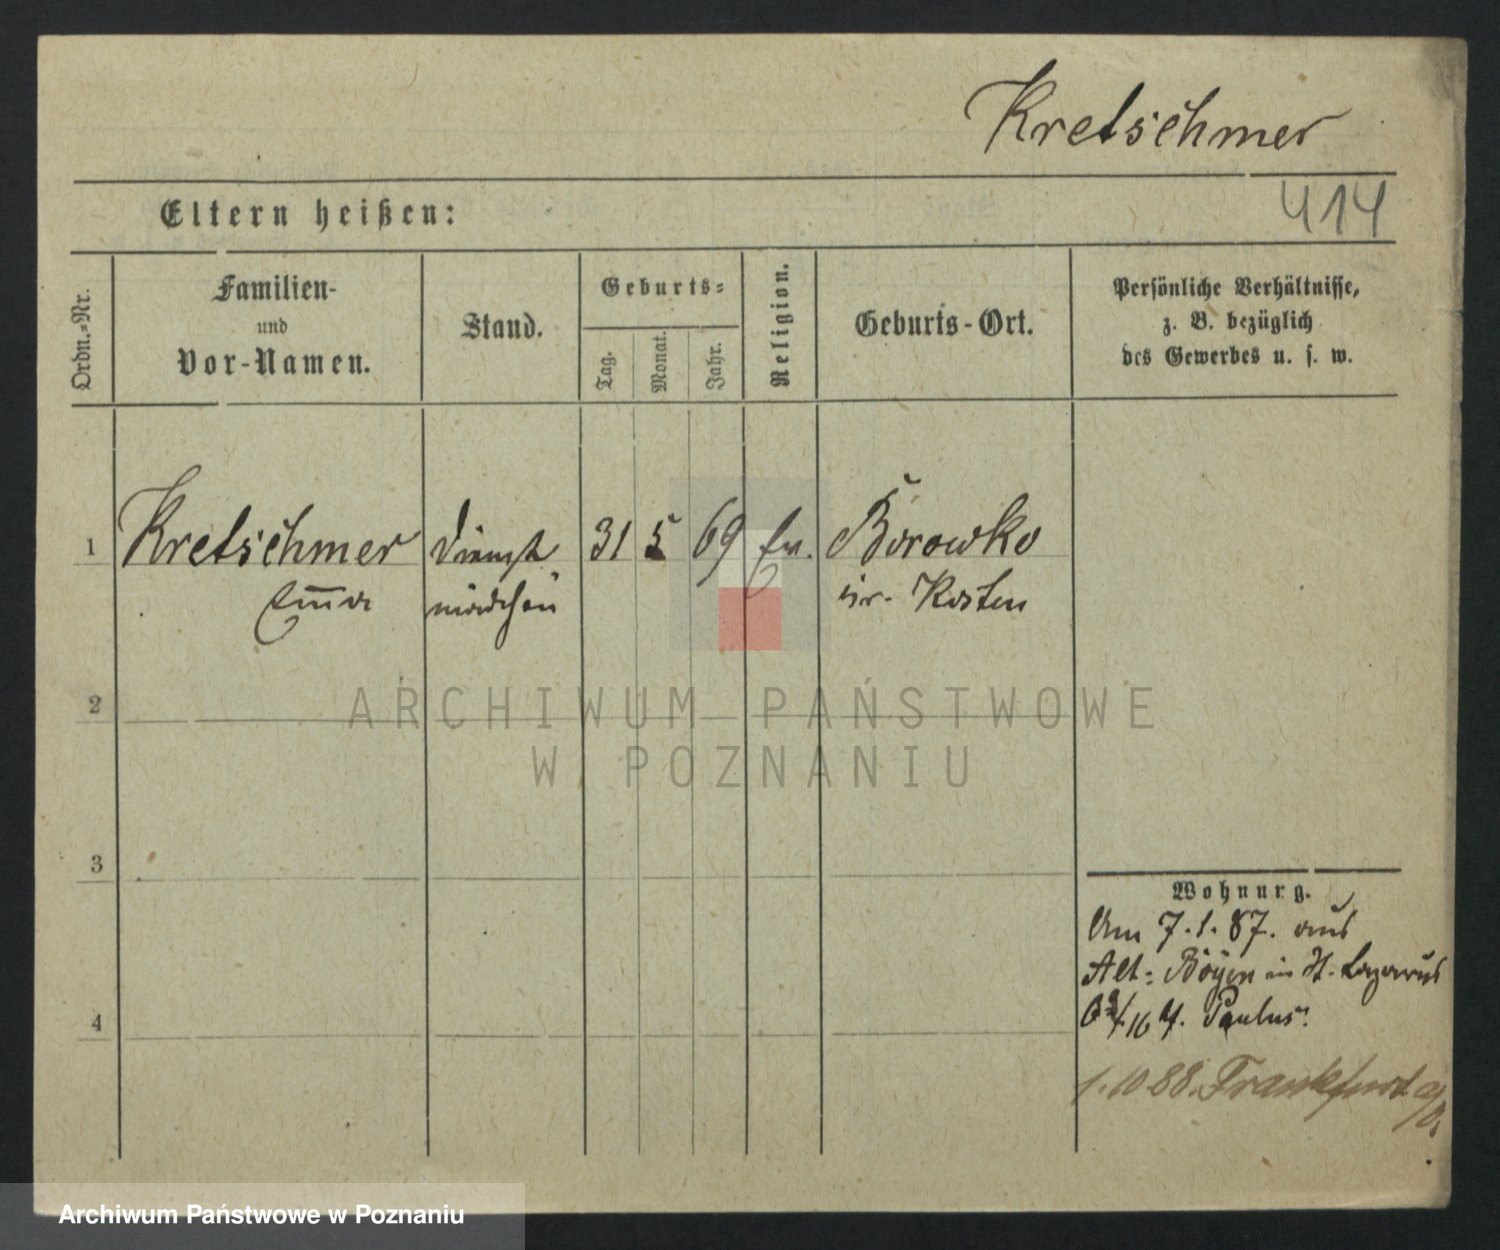 Kretschmer
414
Eltern heißen:
Ordn.-Nr.
Familien-
und
Vor-Namen.
Stand.
Geburts-
Tag.
Monat.
Jahr.
Religion.
Geburts-Ort.
Persönliche Verhältnisse,
z. B. bezüglich
des Gewerbes u. s. w.
1 Kretschmer Dienst 31 5 69 ev. Borowko
Em̅a mädchen Kr. Kosten
2
ARCHIWUM PAŃSTWOWE
W POZNANIU
3
Wohnung.
Am 7.1.87. aus
Alt- Boyen in St. Lazarus
Paulus.
4
1.10 88. Frankfurt a/O.
Archiwum Państwowe w Poznaniu